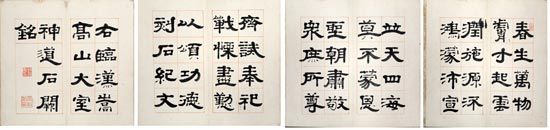 春生萬物
膚寸起雲
潤施源流
鴻濛沛宣
並天四海
莫不蒙恩
聖朝肅敬
眾庶所尊
齊誠奉祀
戰慄盡懃
以頌功德
刻石紀文
右臨漢嵩
高山大室
神道石闕
銘